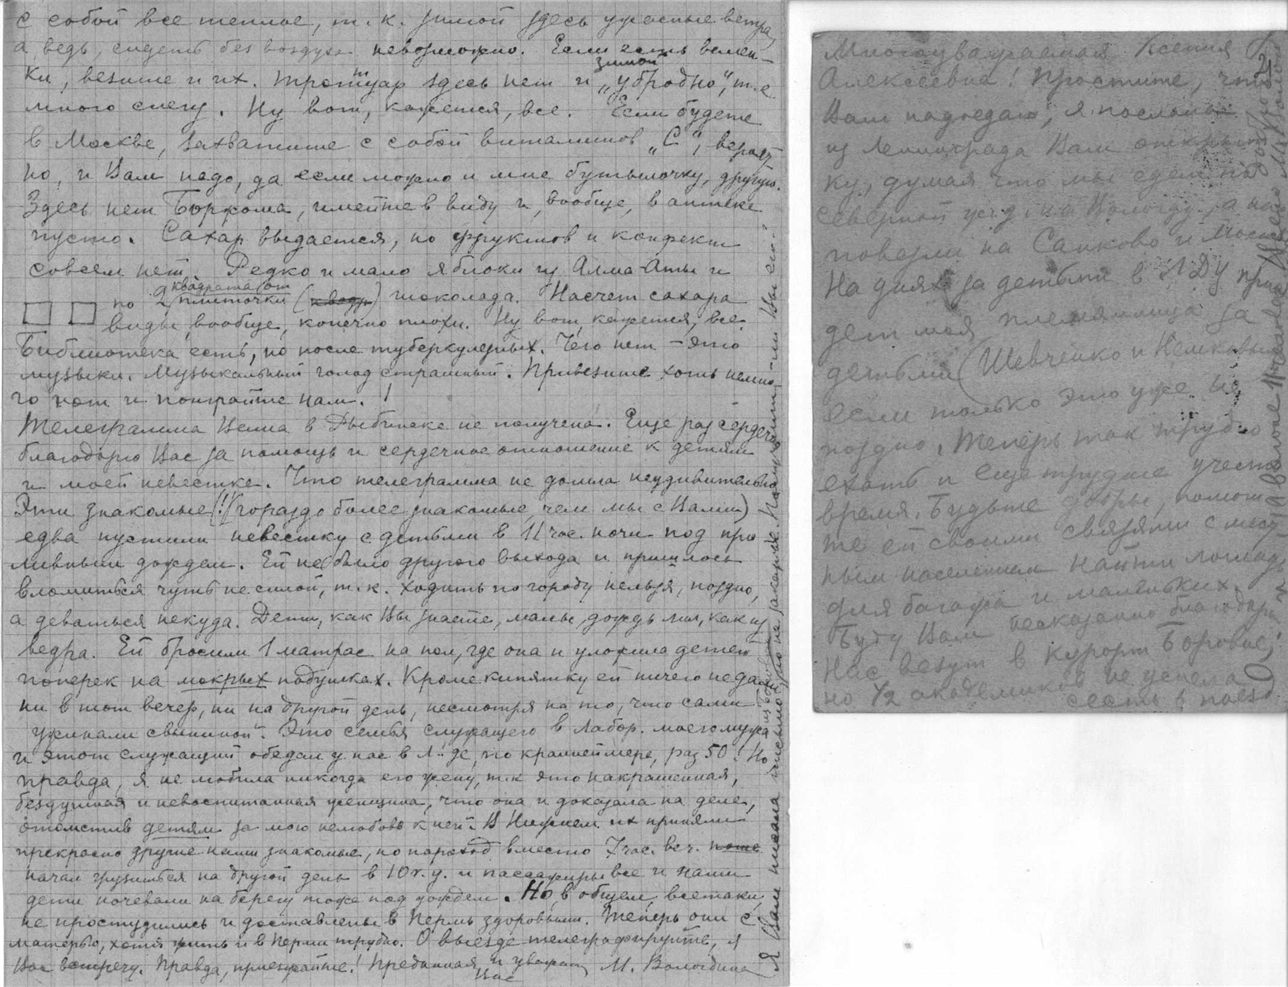 с собой все теплое, т.к. зимой здесь ужасные ветра,
а ведь, сидеть без воздуха невозможно. Если есть вален-
ки, везите и их. Тротуар здесь нет и зимой „убродно", т.е.
много снегу. Ну вот, кажется, все. Если будете
в Москве, захватите с собой витаминов „С", вероят
но, и Вам надо, да если можно и мне бутылочку, другую.
Здесь нет Боржома, имейте в виду и, вообще, в аптеке
пусто. Сахар выдается, но фруктов и конфект
совсем нет. Редко и мало яблоки из Алма-Аты и
по 2 квадратат плиточки шоколада. Насчет сахара
виды, вообще, конечно плохи. Ну вот, кажется, все.
Библиотека есть, но после туберкулезных. Чего нет – это
музыки. Музыкальный голод страшный. Привезите хоть немно
го нот и поиграйте нам.!
Телеграмма Вами в Рыбинске не получена. Еще раз сердечно
благодарю Вас за помощь и сердечное отношение к детям
и моей невестке. Что телеграмма не дошла неудивительно
Эти знакомые (!(гораздо более знакомые чем мы с Вами)
едва пустили невестку с детьми в 11 час. ночи под про
ливным дождем. Ей не было другого выхода и пришлось
вломиться чуть не силой, т.к. ходить по городу нельзя, поздно,
а деваться некуда. Дети, как Вы знаете, малы, дождь лил, как из
ведра. Ей бросили 1 матрас на пол, где она и уложила детей
поперек на мокрых подушках. Кроме кипятку ей ничего не дали
ни в тот вечер, ни на другой день, несмотря на то, что сами
ужинали свининой. Это семья служащего в лабор. моего мужа
и этот служащий обедал у нас в Л-де, по крайней мере, раз 50! Но
правда, я не любила никогда его жену, т.к. это накрашенная,
бездушная и невоспитанная женщина, что она и доказала на деле,
отомстив детям за мою нелюбовь к ней. В Нижнем их приняли
прекрасно другие наши знакомые, но пароход вместо 7 час. веч.
начал грузиться на другой день в 10 ч. у. и пассажиры все и наши
дети ночевали на берегу тоже под дождем. Но, в общем, все таки,
не простудились и доставлены в Пермь здоровыми. Теперь они с
матерью, хотя жить и в Перми трудно. О выезде телеграфируйте, я
Вас встречу. Правда, приезжайте! Преданная и уважающ Вас М. Вологдина
Я Вам писала письмо
Многоуважаемая Ксения
Алексеевна! Простите, что
Вам надоедаю, я послала
из Ленинграда Вам открыт
ку, думая что мы едем на
северной уч. на Вологду, а нас
повезли на Сапково и
На днях за детьми в Л Ду прие
дет моя племянница за
детьми (Шевченко и
если только это уже не
поздно. Теперь так трудно
ехать и еще труднее учесть
время. Будьте добры, помоги
те ей своими связями с мест
ным населением найти лошадь
для багажа и маленьких.
Буду Вам несказанно благодарна
Нас везут в Курорт Боровое,
но 1/2 академиков не успела
сесть в поезд